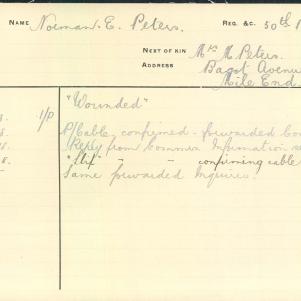 NAME Norman. E. Peters. REG. &c. 50th
NEXT OF KIN Mrs M. Peters.
ADDRESS Bagot Avenue
Mile End
1/P "Wounded"
P/Cable, confirmed - forwarded
Reply from Common Information
"Slip" - - confirming cable
Same forwarded Inquirer.